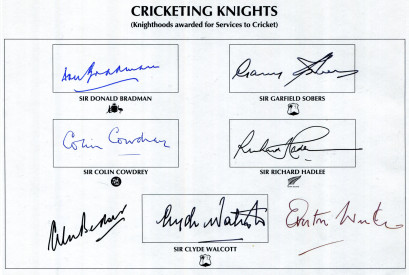 CRICKETING KNIGHTS
(Knighthoods awarded for Services to Cricket)
Don Bradman
Garry Sobers
SIR DONALD BRADMAN
SIR GARFIELD SOBERS
Colin Cowdrey
Richard Hadlee
SIR COLIN COWDREY
SIR RICHARD HADLEE
Alec Bedser
Clyde Walcott
Everton Weekes
SIR CLYDE WALCOTT